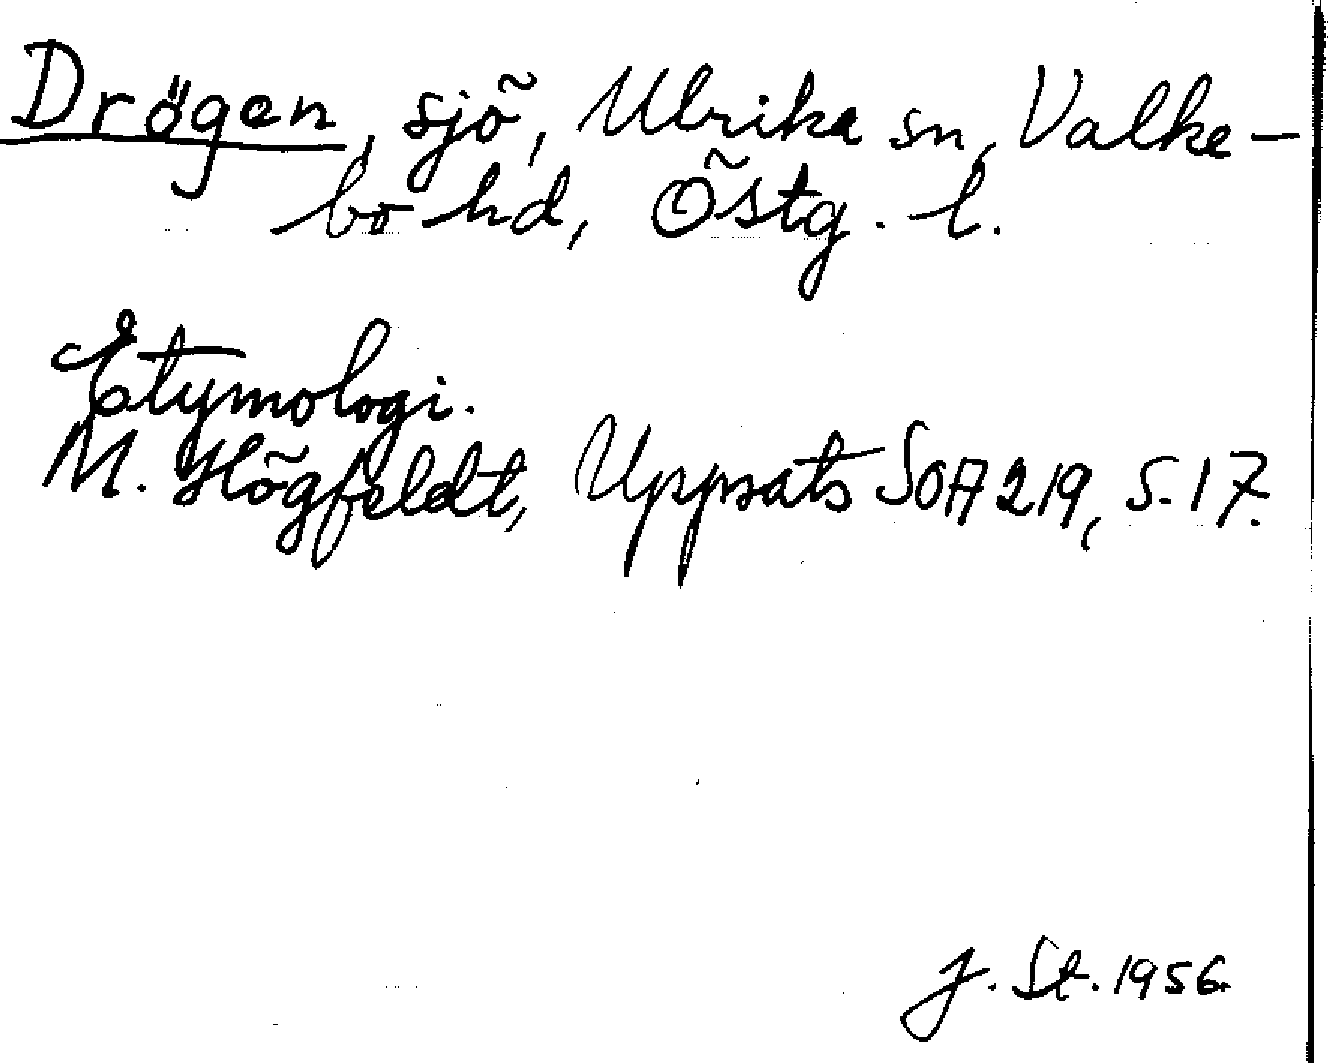 Drögen, sjö, Ulrika sn, Valke-
bo hd, Östg. l.
Etymologi.
M. Högfeldt, Uppsats SOA 219, s. 17.
J. St. 1956.